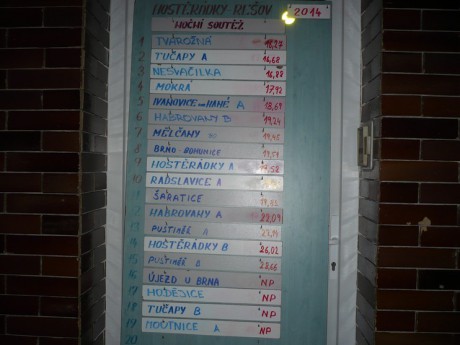 HOSTĚRÁDKY-REŠOV 2014
NOČNÍ SOUTĚŽ
1 TVAROŽNÁ 16,27
2 TUČAPY A 16,68
3 NESVAČILKA 16,88
4 MOKRÁ 17,92
5 IVANOVICE NA HANÉ A 18,69
6 HABROVANY B 19,24
7 MĚLČANY 19,45
8 BRNO BOHUNICE 19,51
9 HOSTĚRÁDKY A
10 RADSLAVICE A
11 ŠARATICE
12 HABROVANY A 22,09
13 PUSTIMĚŘ
14 HOSTĚRÁDKY B 26,02
15 PUSTIMĚŘ
16 ÚJEZD U BRNA NP
17 HODĚJICE NP
18 TUČAPY B NP
19 MOUTNICE A NP
20